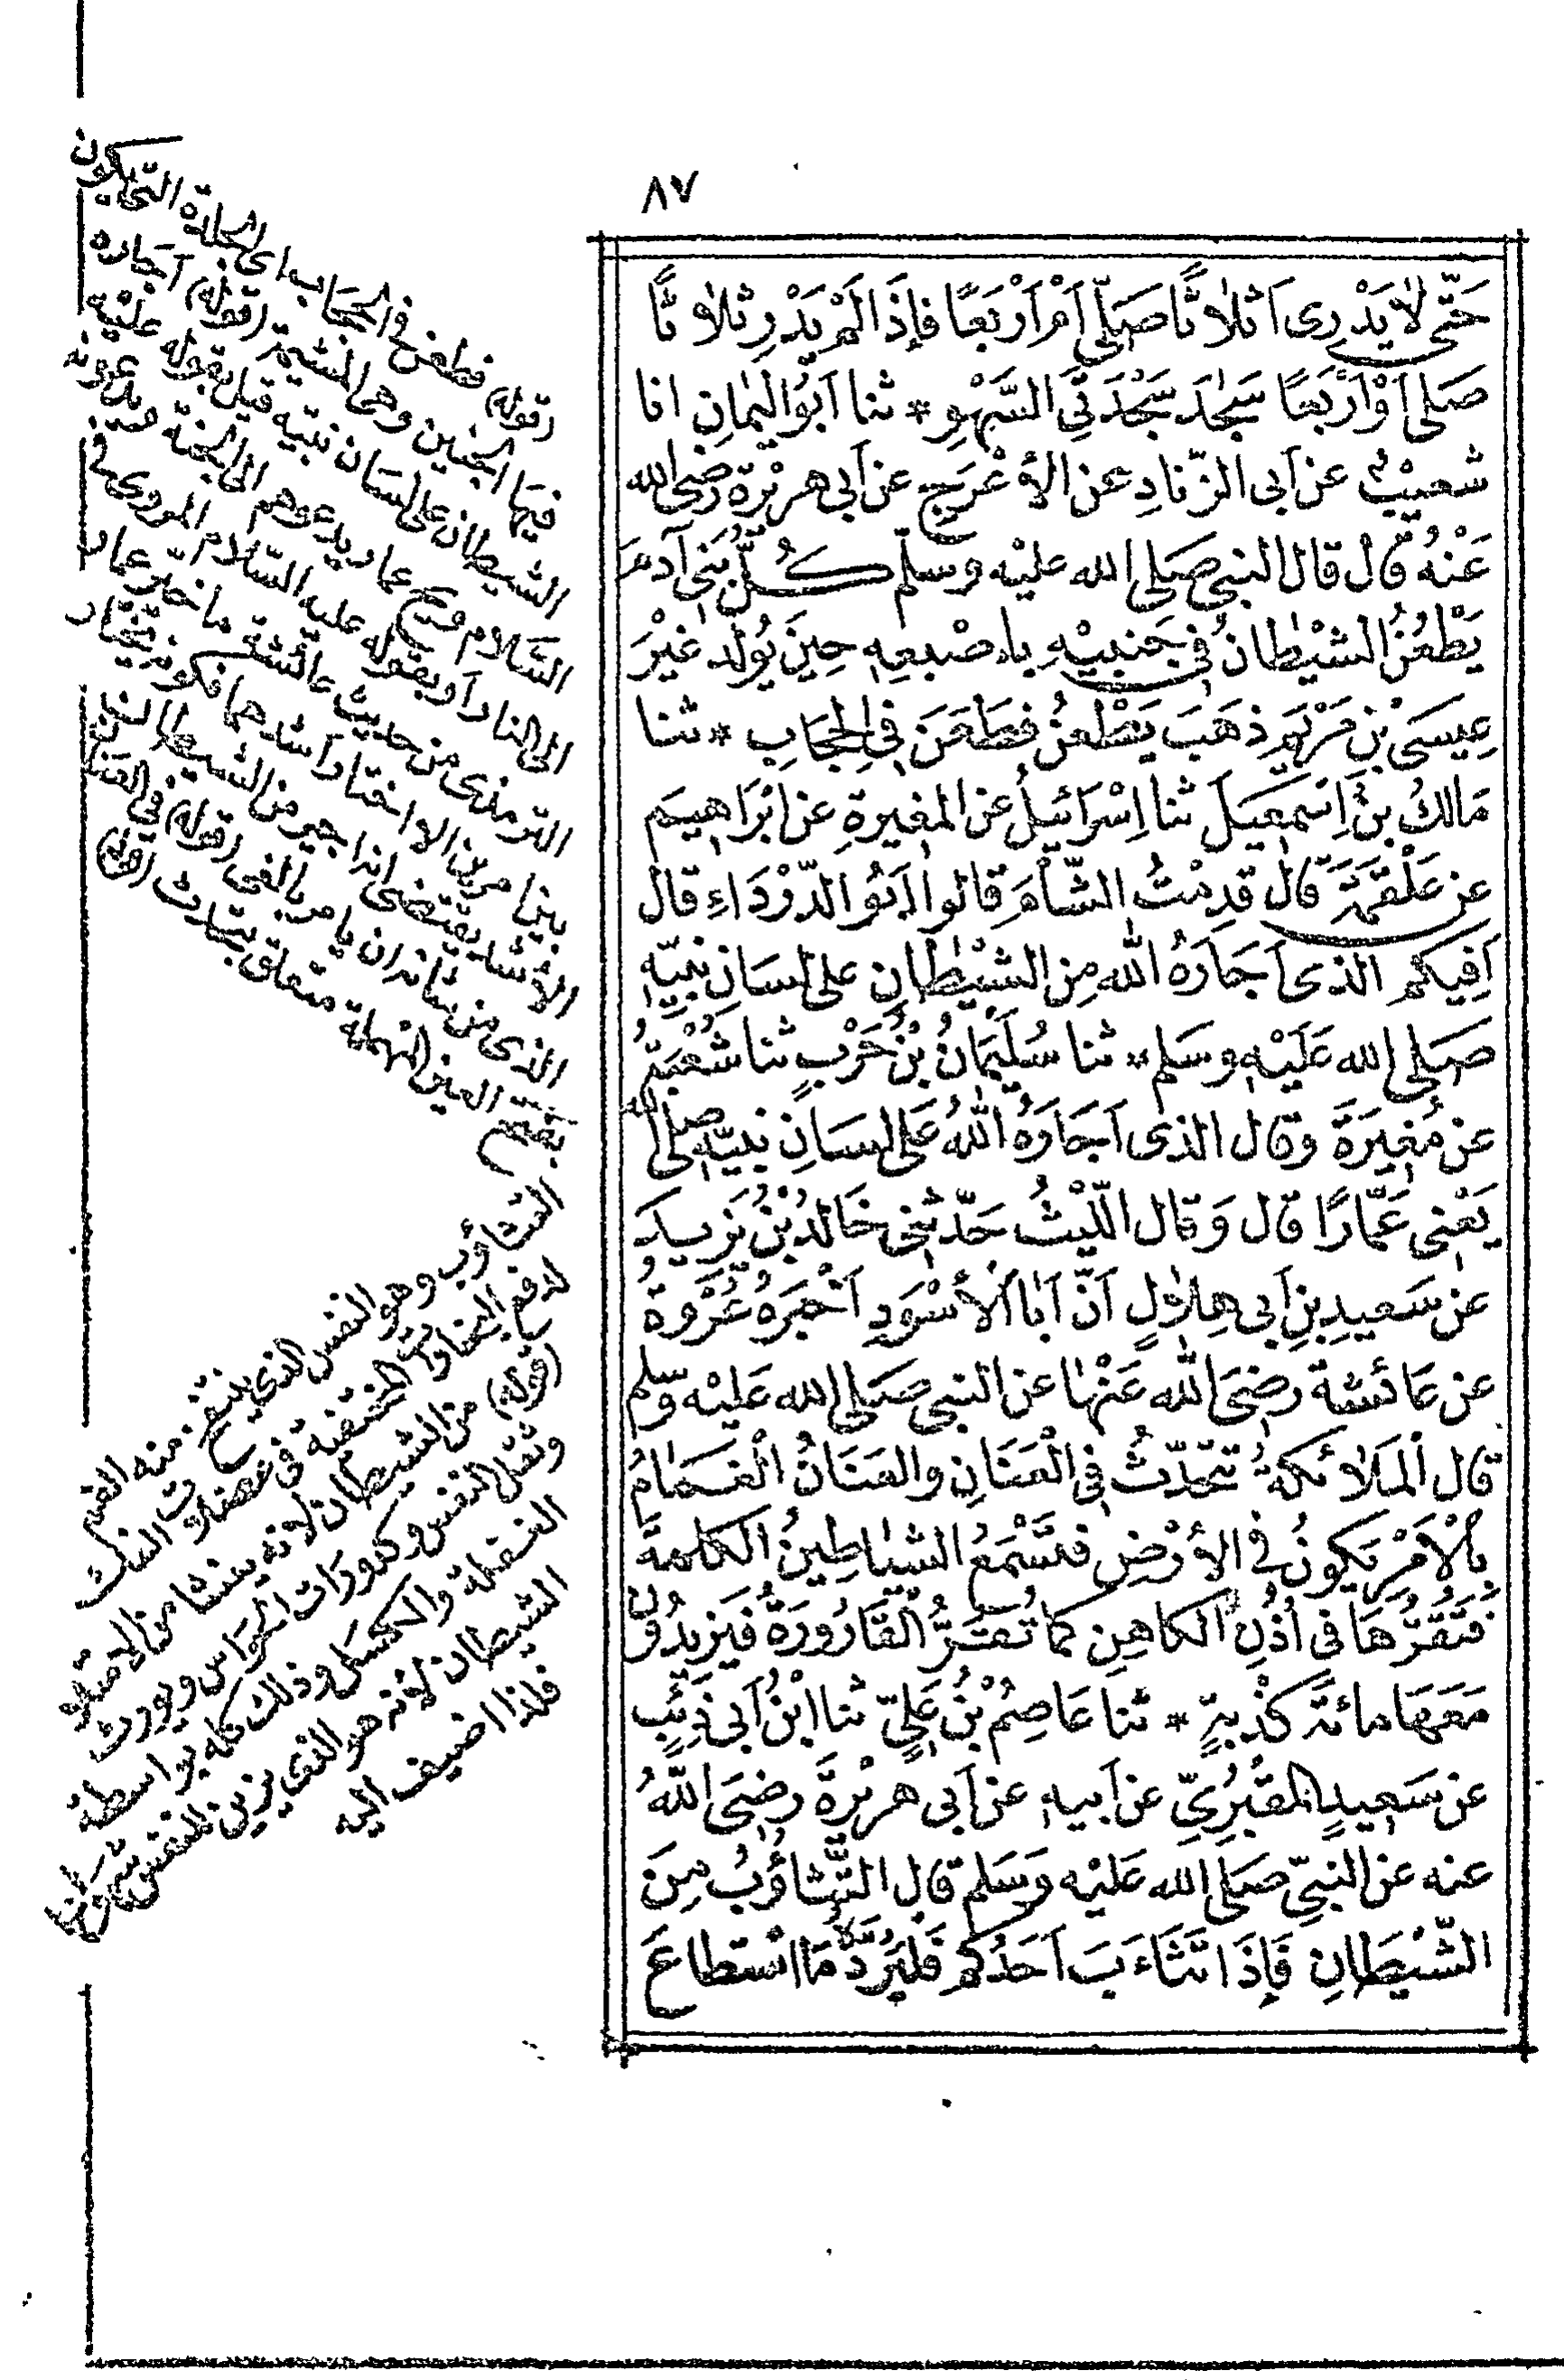 ٨٧
حَتّٰى لَا يَدْرِى اَثلَاثًا صَلّٰى اَمْ اَرْبَعًا فاِذَا لَمْ يَدْرِ ثلاثًا
صَلى اَوْ اَرْبَعًا سَجَدَ سَجْدَتَىِ السَّهْوِ * ثنا اَبُو اليمانِ انا
شعيْبٌ عن اَبى الزّنادِ عن الأعْرَجِ عن اَبى هريْرة رضى الله
عَنْهُ قال قال النبى صَلى الله عليْه وسلّم كُلُّ بَنى آدمَ
يَطْعُنُ الشيْطانُ فى جَنبيْهِ باِصْبعِهِ حِينَ يُولد غيْرَ
عِيسَى بْنِ مَرْيَمَ ذهَبَ يَطْعنُ فطَعَنَ فى الحِجَابِ * ثنا
مَالكُ بنُ اِسْمعِيلَ ثنا اِسْرَائيلُ عن المغيرةِ عن ابْرَاهيمَ
عن عَلْقمَةَ قال قدِمْتُ الشّأمَ قالوا ابَو الدّرْدَاءِ قال
اَفِيكم الذى اَجَارَهُ الله مِن الشيْطانِ على لسَانِ نبيّهِ
صَلى الله عَليْه وسَلم * ثنا سُليْمانُ بْنُ حَرْبٍ ثنا شُعْبَةُ
عن مُغِيرَةَ وقال الذى اَجَارَهُ اللهُ عَلى لسَانِ نبيّه صلى الله
يَعْنى عَمّارًا قال وَقال اللّيْثُ حَدّثنى خَالدُ بْنُ يَزِيدَ
عن سَعيدِ بنِ اَبى هِلالٍ اَنّ اَبا الأسْوَدِ اَخْبرَهُ عُرْوة
عن عَائشة رضىَ الله عَنْها عن النبى صَلى الله عَليْه وسلم
قال المَلائكةُ تتحَدّثُ فى العَنانِ والعَنَانُ الغَمَامُ
بِالأمْرِ يَكونُ فى الأرْضِ فتَسْمَعُ الشياطِينُ الكلمةَ
فتَقُرُّهَا فى اُذُنِ الكاهِنِ كما تُقَرُّ القَارُورَةُ فيَزِيدُونَ
مَعَهَا مائةَ كَذْبةٍ * ثنا عَاصِمُ بْنُ عَلىٍّ ثنا ابْنُ اَبى ذِئبٍ
عن سَعيدٍ المقْبُرِىِّ عن اَبيهِ عن اَبى هريْرةَ رضىَ اللهُ
عنه عن النبىّ صَلى الله عَليْه وَسَلم قال التَّثاؤُبُ مِنَ
الشّيْطَانِ فَاِذَا تثَاءَبَ اَحَدُكُم فَليَرُدَّهُ مَا اسْتطاعَ
(قوله) فطعن فى الحجاب اى الجلدة التى يكون
فيها الجنين وهى المشيمة (قوله) اجاره
الشيطان على لسان نبيه قيل بقوله عليْه
السّلام ويح عمار يدعوهم الى الجنة ويدعونه
الى النار او بقوله عليه السّلام المروى فى
الترمذى من حديث عائشة ما خير عمار
بين امرين الا اختار اشدهما فكونه يختار
الأشد يقتضى انه اجير من الشيطان
الذى من شانه ان يامر بالغى (قوله) فى العنان
بفتح العين المهملة متعلق بتحدث (قوله)
التثاؤب وهو النفس الذى ينفتح منه الفم
لدفع البخارات المختقنة فى عضلات الفك
(قوله) من الشيطان لانه ينشأ من الامتلاء
وثقل النفس وكدورات الحواس ويورث
الغفلة والكسل وذلك كله بواسطة
الشيطان لأنه هو الذى يزين للنفس شهوتها
فلذا اضيف اليه